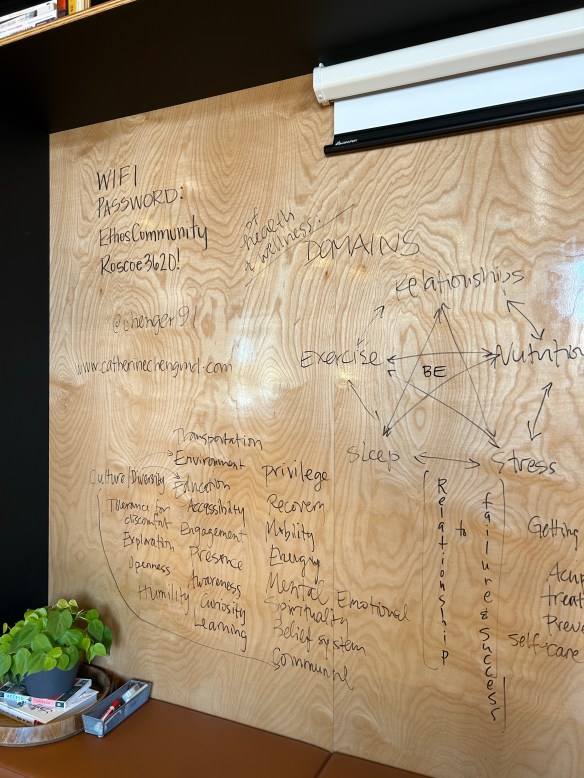 WIFI
PASSWORD:
EthosCommunity
Roscoe3620!
@chenger91
www.catherinechengmd.com
of
health
& wellness:
DOMAINS
relationships
Exercise
BE
Nutrition
Sleep
Stress
Relationship
to
failure & success
Getting
self-care
Transportation
Environment
Culture/Diversity
Education
Tolerance for
discomfort
Exploration
Openness
Humility
Accessibility
Engagement
Presence
Awareness
Curiosity
Learning
privilege
Recovery
Mobility
Energy
Mental Emotional
Spirituality
Belief system
Communal